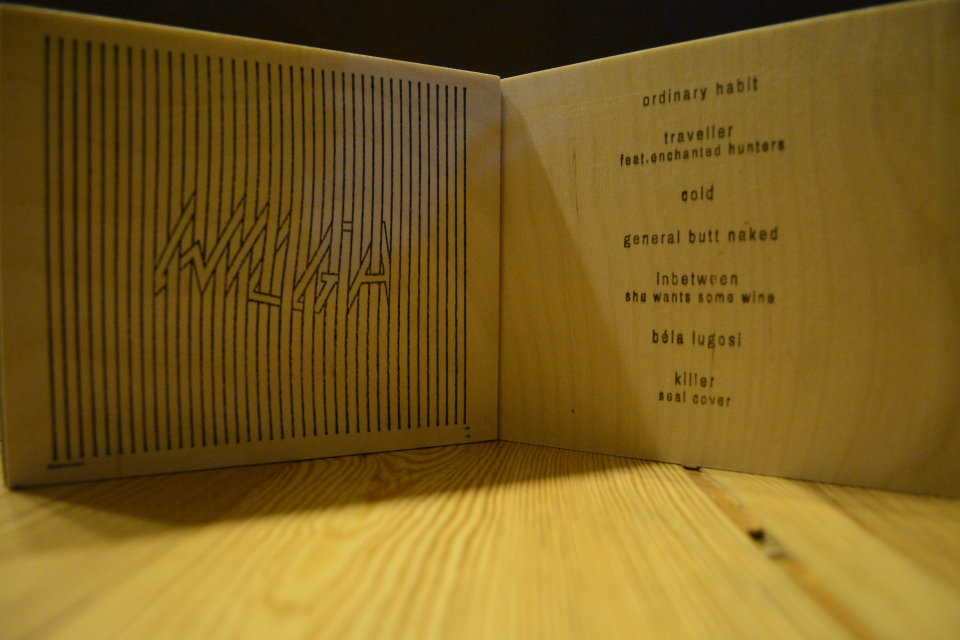 ordinary habit
traveller
feat.enchanted hunters
cold
general butt naked
Inbetween
she wants some wine
béla lugosi
killer
seal cover